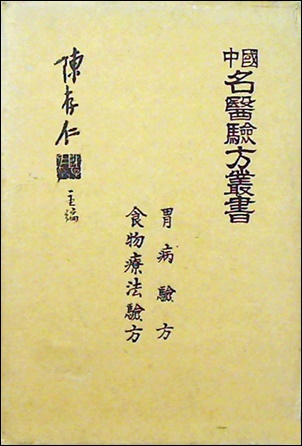 中國
名醫驗方叢書
胃病驗方
食物療法驗方
陳存仁
主編